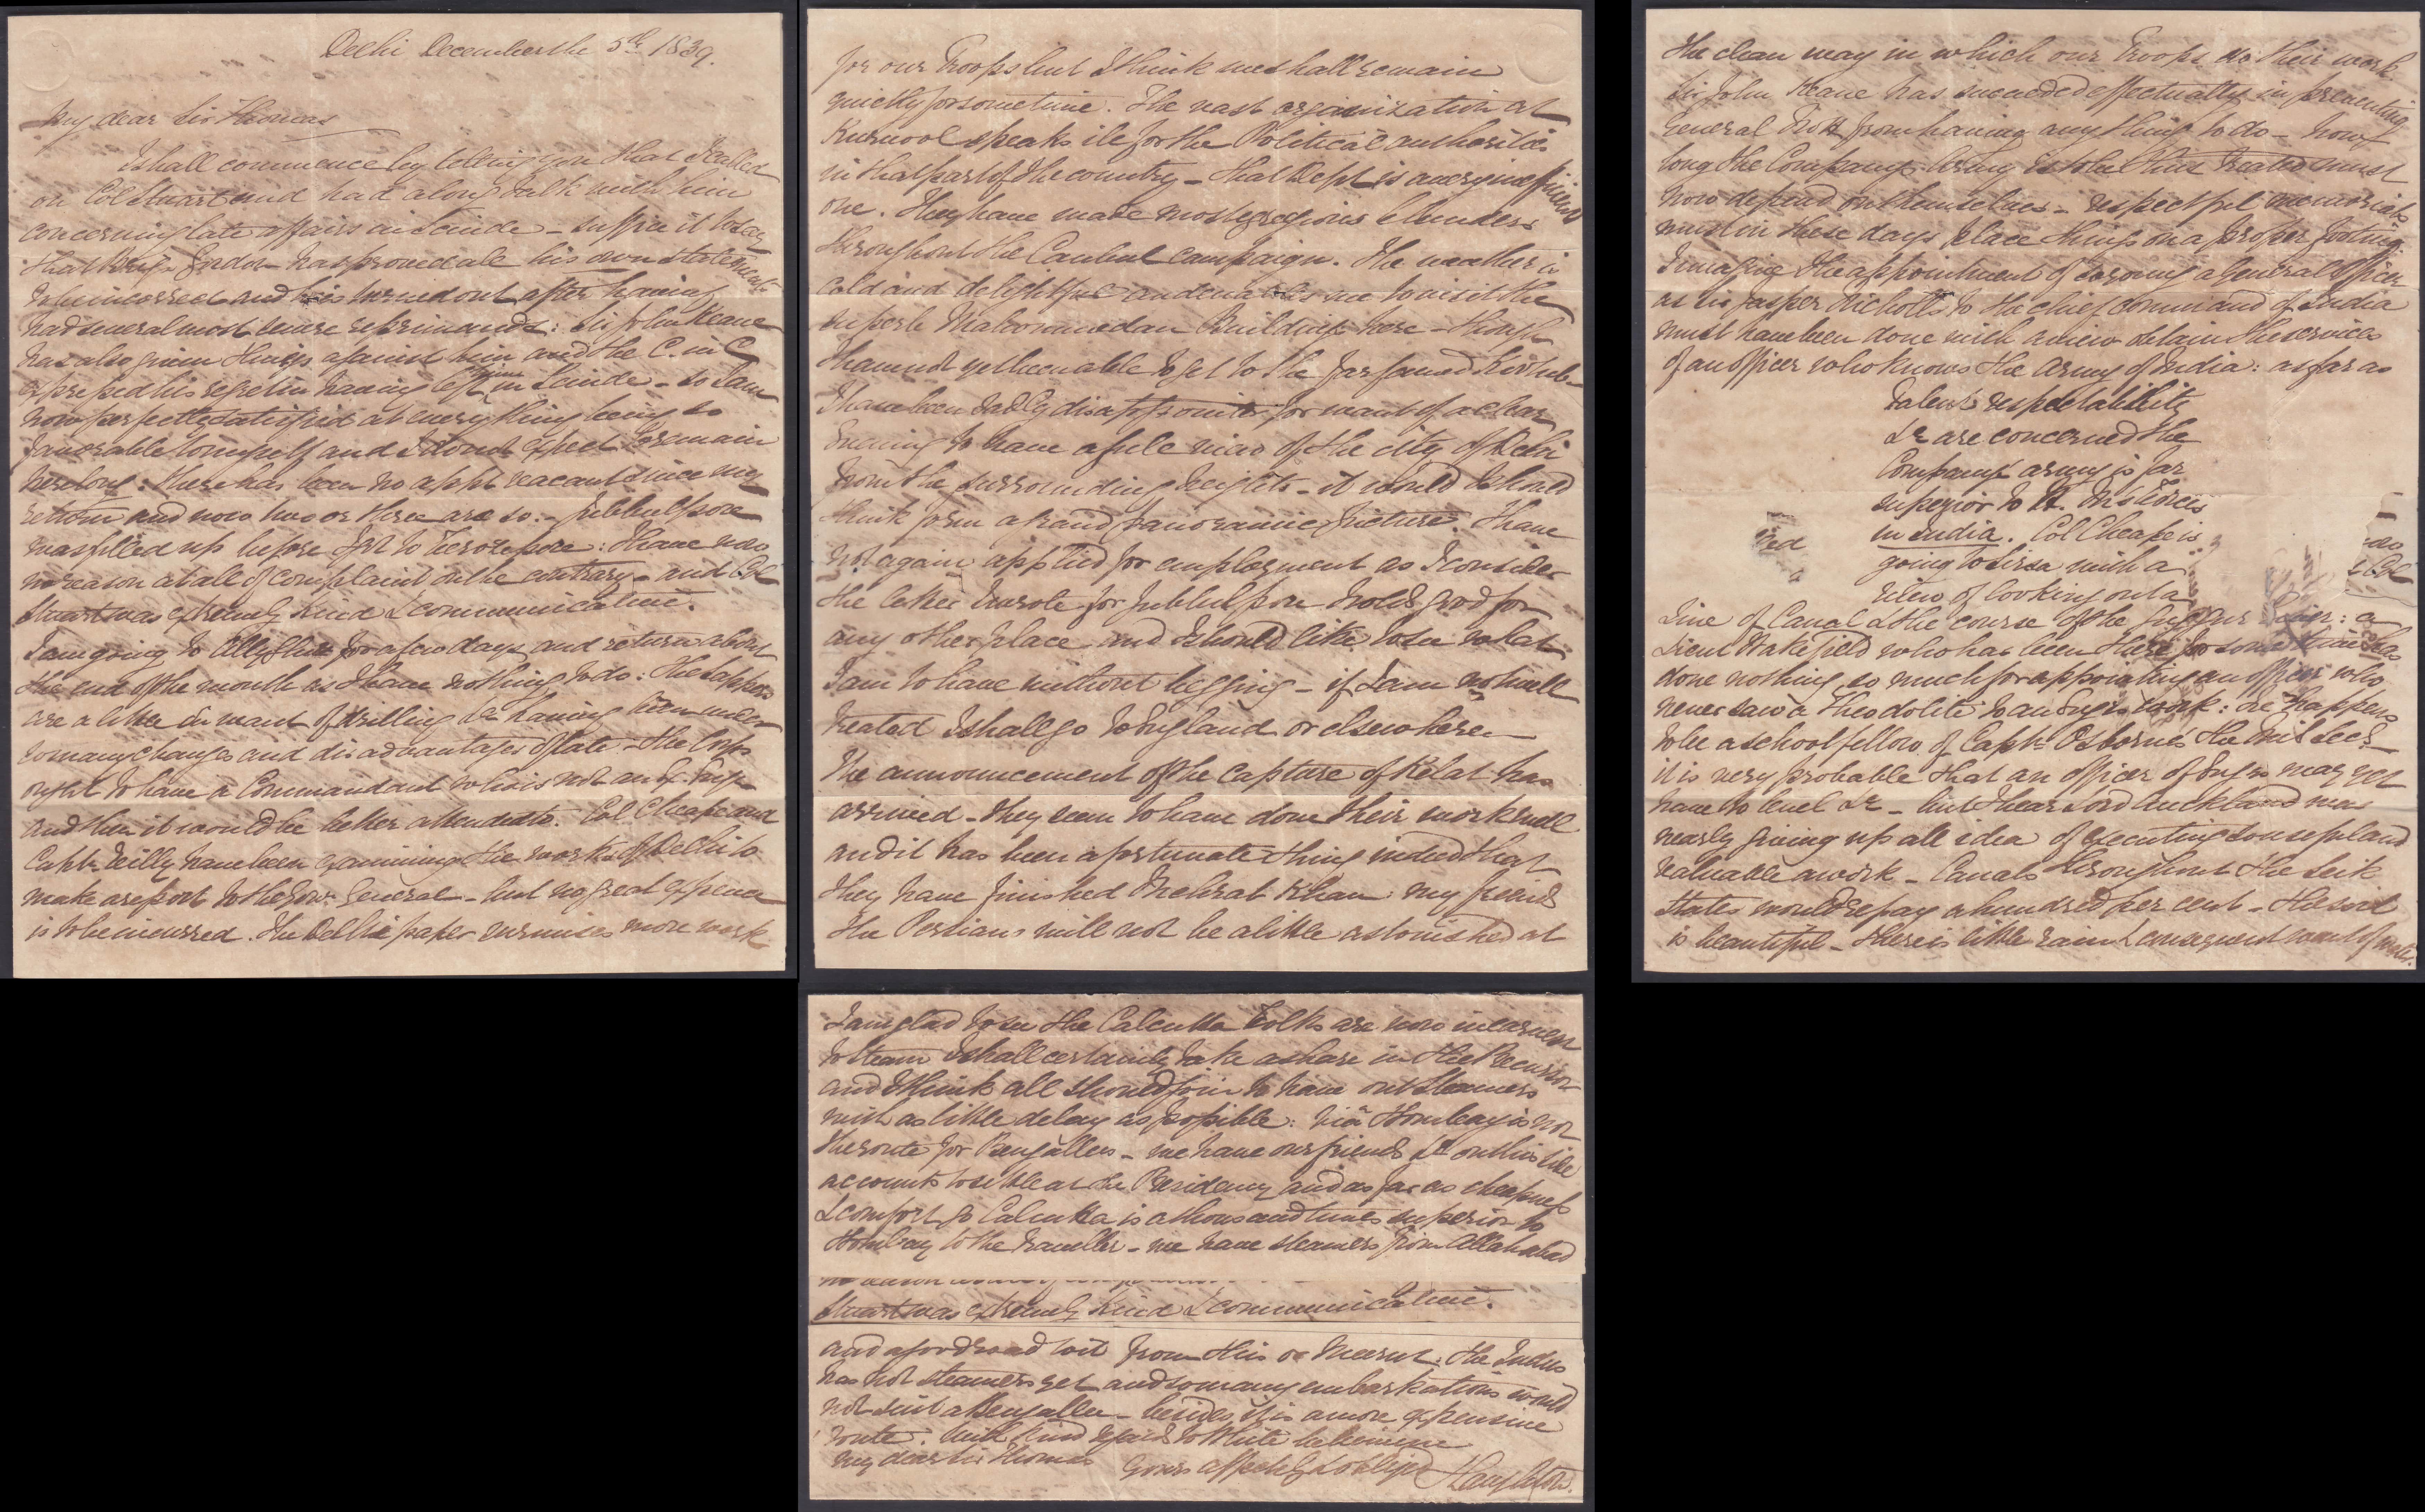 Delhi December the 5th 1839.
My dear Sir Thomas
I shall commence by telling you that I called
on Col Stuart and had a long talk with him
concerning late affairs in Scinde - suffice it to say
that Gordon has proved all his own statements
to be incorrect and is turned out after having
had several most severe reprimands: Sir John Keane
has also given things against him and the C. in C
expressed his regret in having left in Scinde - so I am
now perfectly satisfied at every thing being so
favorable to myself and I do not expect to remain
here long: there has been no appt vacant since my
return and now two or three are so: - Jubbulpore
was filled up before I got to Ferozepore: I have now
no reason at all of complaint on the contrary - and Col
Stuart was extremely kind & communicative.
I am going to Allyghur for a few days and return about
the end of the month as I have nothing to do: the Sappers
are a little in want of drilling &c having been under
so many changes and disadvantages of late - the Corps
ought to have a Commandant who is not an Ex. Engr.
and then it would be better attended to. Col Cheape and
Captn Reilly have been examining the works of Delhi to
make a report to the Govr General - but no great expence
is to be incurred. The Delhi paper surmises more work
for our Troops but I think we shall remain
quietly for some time. The vast organization at
Kurnool speaks ill for the Political authorities
in that part of the country - that Dept is a very inefficient
one. They have made most egregious blunders
throughout the Caubul campaign. The weather is
cold and delightful and enables me to visit the
superb Mahommedan Buildings here - though
I have not yet been able to get to the far famed Kootub -
I have been sadly disappointed for want of a clear
Evening to have a full view of the city of Delhi
from the surrounding heights - it would I should
think form a grand panoramic picture. I have
not again applied for employment as I consider
the letter I wrote for Jubbulpore holds good for
any other place and I should like to see what
I am to have without begging - if I am not well
treated I shall go to England or elsewhere -
The announcement of the capture of Kelat has
arrived - they seem to have done their work well
and it has been a fortunate thing indeed that
they have finished Mehrab Khan: my friends
the Persians will not be a little astonished at
the clean way in which our Troops do their work
Sir John Keane has succeeded effectually in preventing
General Nott from having any thing to do - how
long the Companys Army is to be thus treated must
now depend on themselves - respectful memorials
must in these days place things on a proper footing.
I imagine the appointment of so young a General Officer
as Sir Jasper Nicholls to the chief command of India
must have been done with a view obtain the services
of an officer who knows the Army of India: as far as
talent respectability
&c are concerned the
Companys army is far
superior to H. M's Forces
in India. Col Cheape is
going to Sirsa with a
view of looking out a
Line of Canal & the course of the River: a
Lieut Wakefield who has been there for some time has
done nothing so much for appointing an officer who
never saw a Theodolite to an Engrs work: he happens
to be a schoolfellow of Captn Osborne's the Mil Secy
it is very probable that an officer of Engrs may yet
have to level &c - but I hear Lord Auckland was
nearly giving up all idea of executing so useful and
valuable a work - Canals throughout the Seik
States would repay a hundred per cent - the soil
is beautiful - there is little rain & consequent want of water.
I am glad to see the Calcutta Folks are now in earnest
to steam I shall certainly take a share in the Precursor
and I think all should join to have out Steamers
with as little delay as possible: via Bombay is not
the route for Bengallees - we have our friends &c on this side
accounts to settle at the Presidency and as far as cheapness
& comfort go Calcutta is a thousand times superior to
Bombay to the traveller - we have steamers from Allahabad
Stuart was extremely kind & communicative.
and a good road to it from this or Meerut: the Indus
has not steamers yet and so many embarkations would
not suit a Bengallee - besides it is a more expensive
route. With kind regards to White believe me
my dear Sir Thomas Yours affectly & obliged